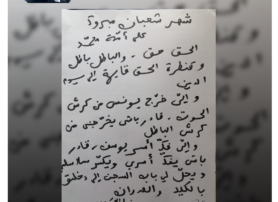 شهر شعبان مبروك
على أمة محمد
الحق حق . والباطل باطل
و كنطرة الحق قايمة إلى يوم
الدين
و إلي خرّج يونس من كرش
الحوت . قادر باش يخرجني من
كرش الباطل
و إلي فكّ أسر يوسف . قادر
باش يفك أسري ويكسّر سلاسله
و يحل لي باب السجن إلي دخلتو